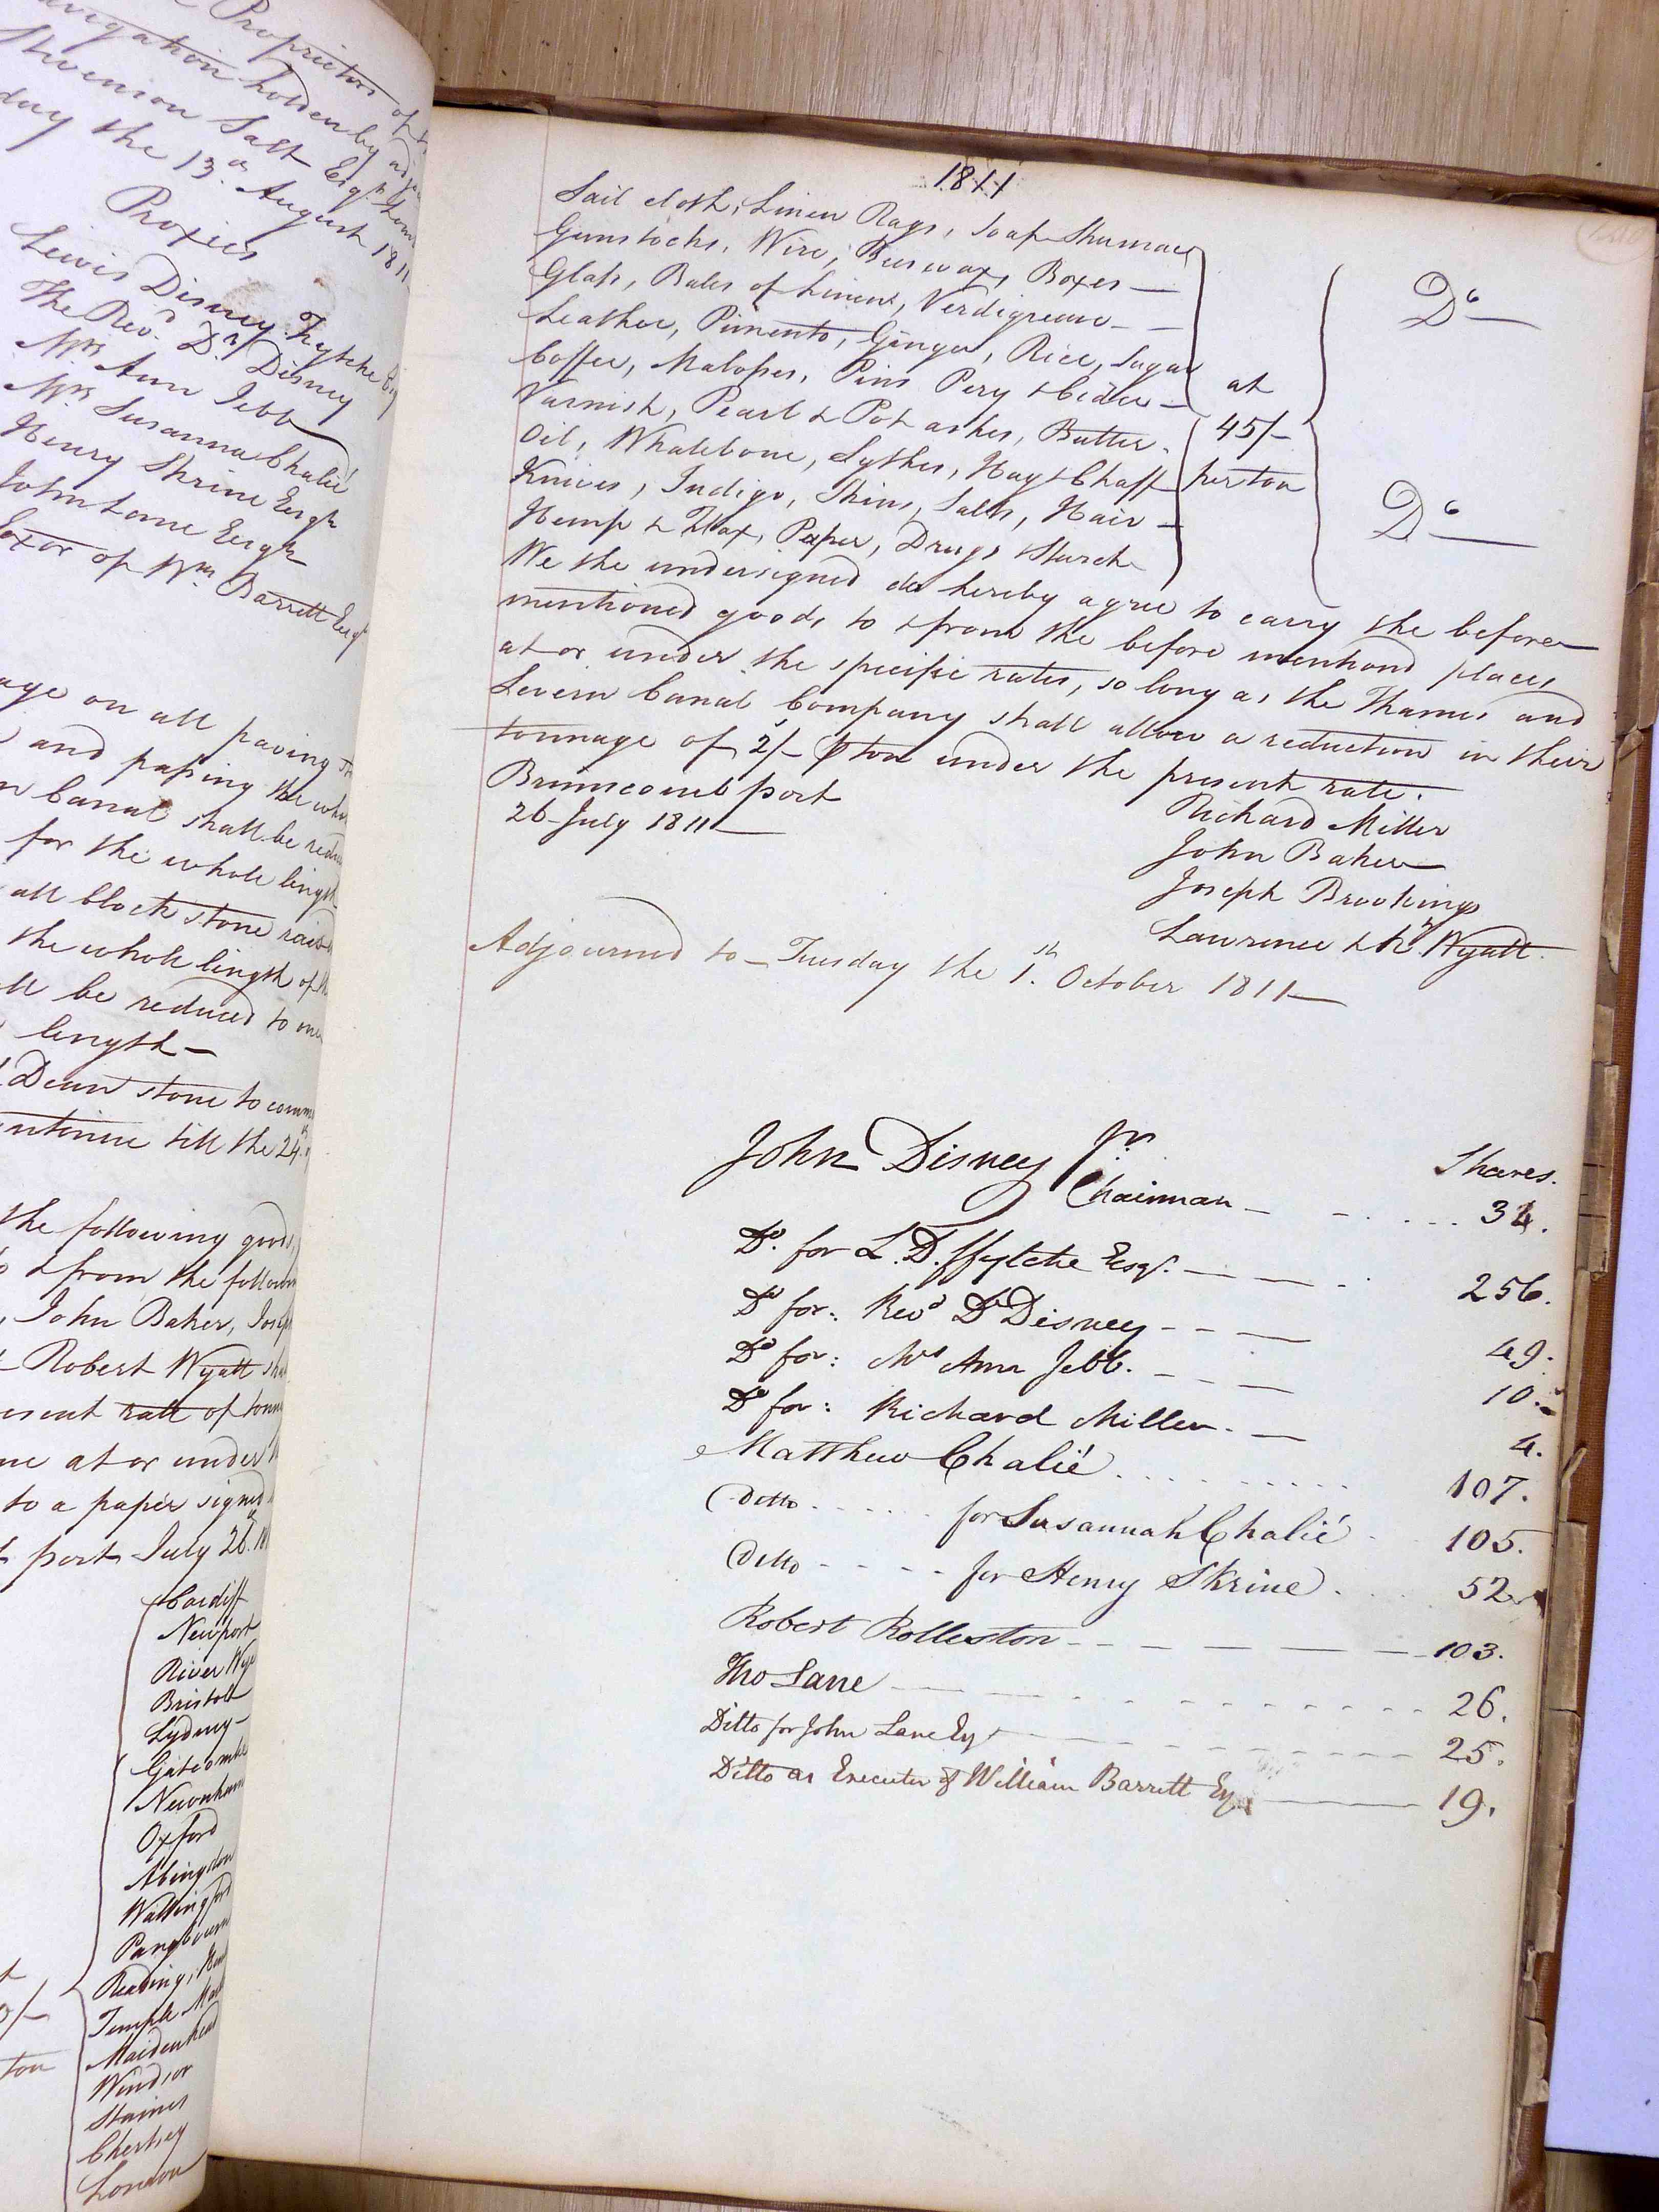 Proprietors of
avigation holden by adj
Stevenson Salt Esqr. Lom
day the 13th August 1811
Proxies
Lewis Disney Ffytche Esq
The Revd. Dr. Disney
Mrs Ann Jebb
Mrs Susanna Chalié
Henry Skrine Esqr
John Lane Esqr
Exor of Wm Barrett Esqr
age on all paving st
and passing the who
n Canal shall be redu
for the whole length
all block stone raised
the whole length of th
ll be reduced to one
length—
Dean stone to comm
ntinue till the 24th
the following goods
& from the followin
, John Baker, Josep
Robert Wyatt sha
esent rate of tonn
me at or under th
to a paper signed
port July 26th 181
Cardiff
Newport
River Wye
Bristol
Lydney—
Gatcombe
Newnham
Oxford
Abingdon
Wallingford
Pangbourn
Reading, Hen
Temple Mar
Maidenhead
Windsor
Staines
Chertsey
London
ton
1811
Sail cloth, Linen Rags, Soap Shumac
Gunstocks, Wire, Beeswax, Boxes —
Glass, Bales of Linen, Verdigrease — —
Leather, Pimento, Ginger, Rice, Sugar
Coffee, Malosses, Pins Pery & Cider —
Varnish, Pearl & Pot ashes, Butter.
Oil, Whalebone, Sythes, Hay & Chaff
Knives, Indigo, Skins, Salts, Hair —
Hemp & Flax, Paper, Drugs & Starch
at
45/-
per ton
Do
Do
We the undersigned do hereby agree to carry the before
mentioned goods to & from the before mentiond places
at or under the specific rates, so long as the Thames and
Severn Canal Company shall allow a reduction in their
tonnage of 2/- ⅌ ton under the present rate.
Brimscomb port
26 July 1811—
Richard Miller
John Baker
Joseph Brookings
Lawrence & Rt Wyatt.
Adjourned to — Tuesday the 1st. October 1811—
John Disney Jr.
Shares.
Chairman — - . . . . - - - 34.
Do. for L. D. Ffytche Esqr. — — — . 256.
Do for: Revd Dr Disney - - — 49.
Do for: Mrs Ann Jebb. - - — 10.
Do for: Richard Miller. — 4.
Matthew Chalié . . . . . . . . . 107.
Ditto - . . . . for Susannah Chalié . 105.
Ditto - - - - for Henry Skrine . . . 52
Robert Rolleston - - — — — — 103.
Tho Lane — — - - - - - - - - - 26.
Ditto for John Lane Esqr — - - - - - - - 25.
Ditto as Executor of William Barrett Esqr — 19.